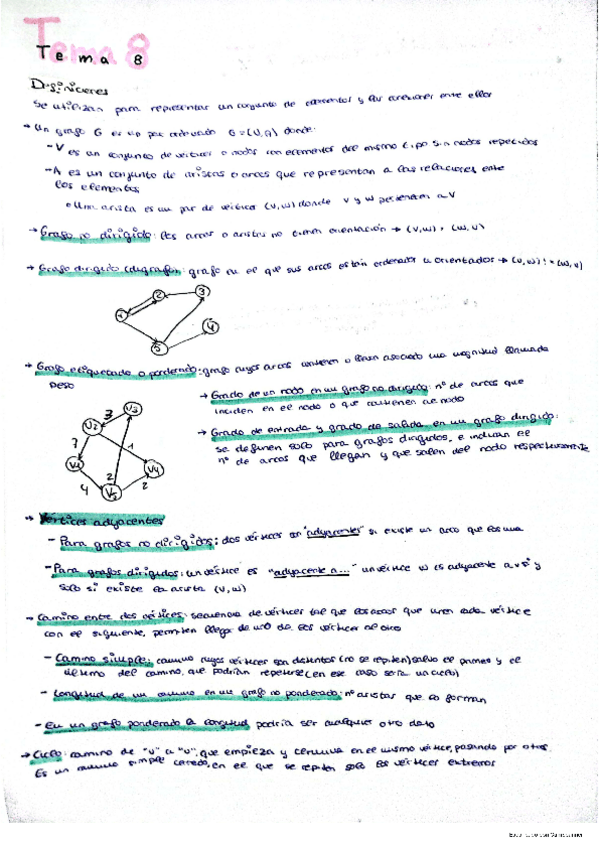 Tema 8
Tema 8
Definiciones
Se utilizan para representar un conjunto de elementos y las conexiones entre ellos
→ Un grafo G es un par ordenado G=(V,A) donde:
-V es un conjunto de vertices o nodos con elementos del mismo tipo sin nodos repetidos
-A es un conjunto de aristas o arcos que representan a las relaciones entre
los elementos
Una arista es un par de vertices (v,w) donde v y w pertenecen a V
→ Grafo no dirigido: los arcos o aristas no tienen orientación → (v,w) = (w,v)
→ Grafo dirigido (digrafo): grafo en el que sus arcos están ordenados u orientados → (v,w) != (w,v)
1 2 3 4 5
→ Grafo etiquetado o ponderado: grafo cuyos arcos contienen o llevan asociado una magnitud llamada
peso
→ Grado de un nodo en un grafo no dirigido: nº de arcos que
inciden en el nodo o que contienen al nodo
→ Grado de entrada y grado de salida en un grafo dirigido:
se definen solo para grafos dirigidos, e indican el
nº de arcos que llegan y que salen del nodo respectivamente
V2 3 V3
7 1
V1 2 V4
4 V5 2
→ Vértices adyacentes
- Para grafos no dirigidos: dos vértices son "adyacentes" si existe un arco que los una
- Para grafos dirigidos: un vértice es "adyacente a..." un vértice w es adyacente a v si y
solo si existe la arista (v,w)
→ Camino entre dos vértices: secuencia de vértices tal que los arcos que unen cada vértice
con el siguiente, permiten llegar de uno de los vértices al otro
- Camino simple: camino cuyos vértices son distintos (no se repiten) salvo el primero y el
último del camino, que podrían repetirse (en ese caso sería un ciclo)
- Longitud de un camino en un grafo no ponderado: nº aristas que lo forman
- En un grafo ponderado la longitud podría ser cualquier otro dato
→ Ciclo: camino de "v" a "v", que empieza y termina en el mismo vértice, pasando por otros.
Es un camino simple cerrado, en el que se repiten solo los vértices extremos